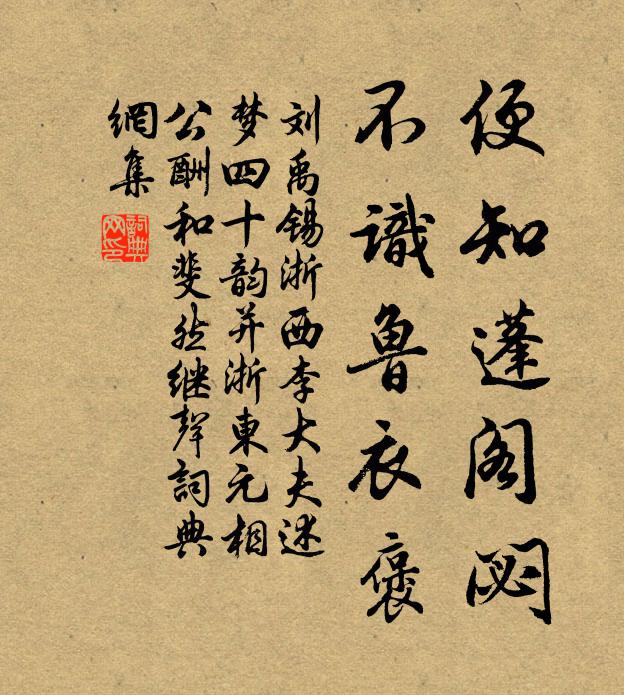 便知蓬阁閟
不識鲁衣褒
刘禹锡浙西李大夫述
梦四十韵并浙東元相
公酬和斐然继聲詞典
網集
詞典
网印